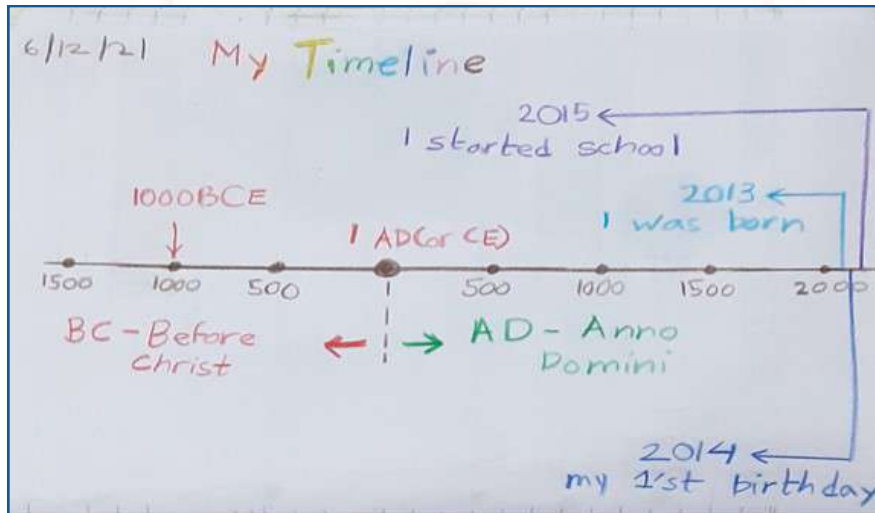 6/12/21 My Timeline
2015
I started school
1000BCE
2013
1 AD(or CE)
I was born
1500 1000 500 1 500 1000 1500 2000
BC - Before
Christ
AD - Anno
Domini
2014
my 1'st birthday